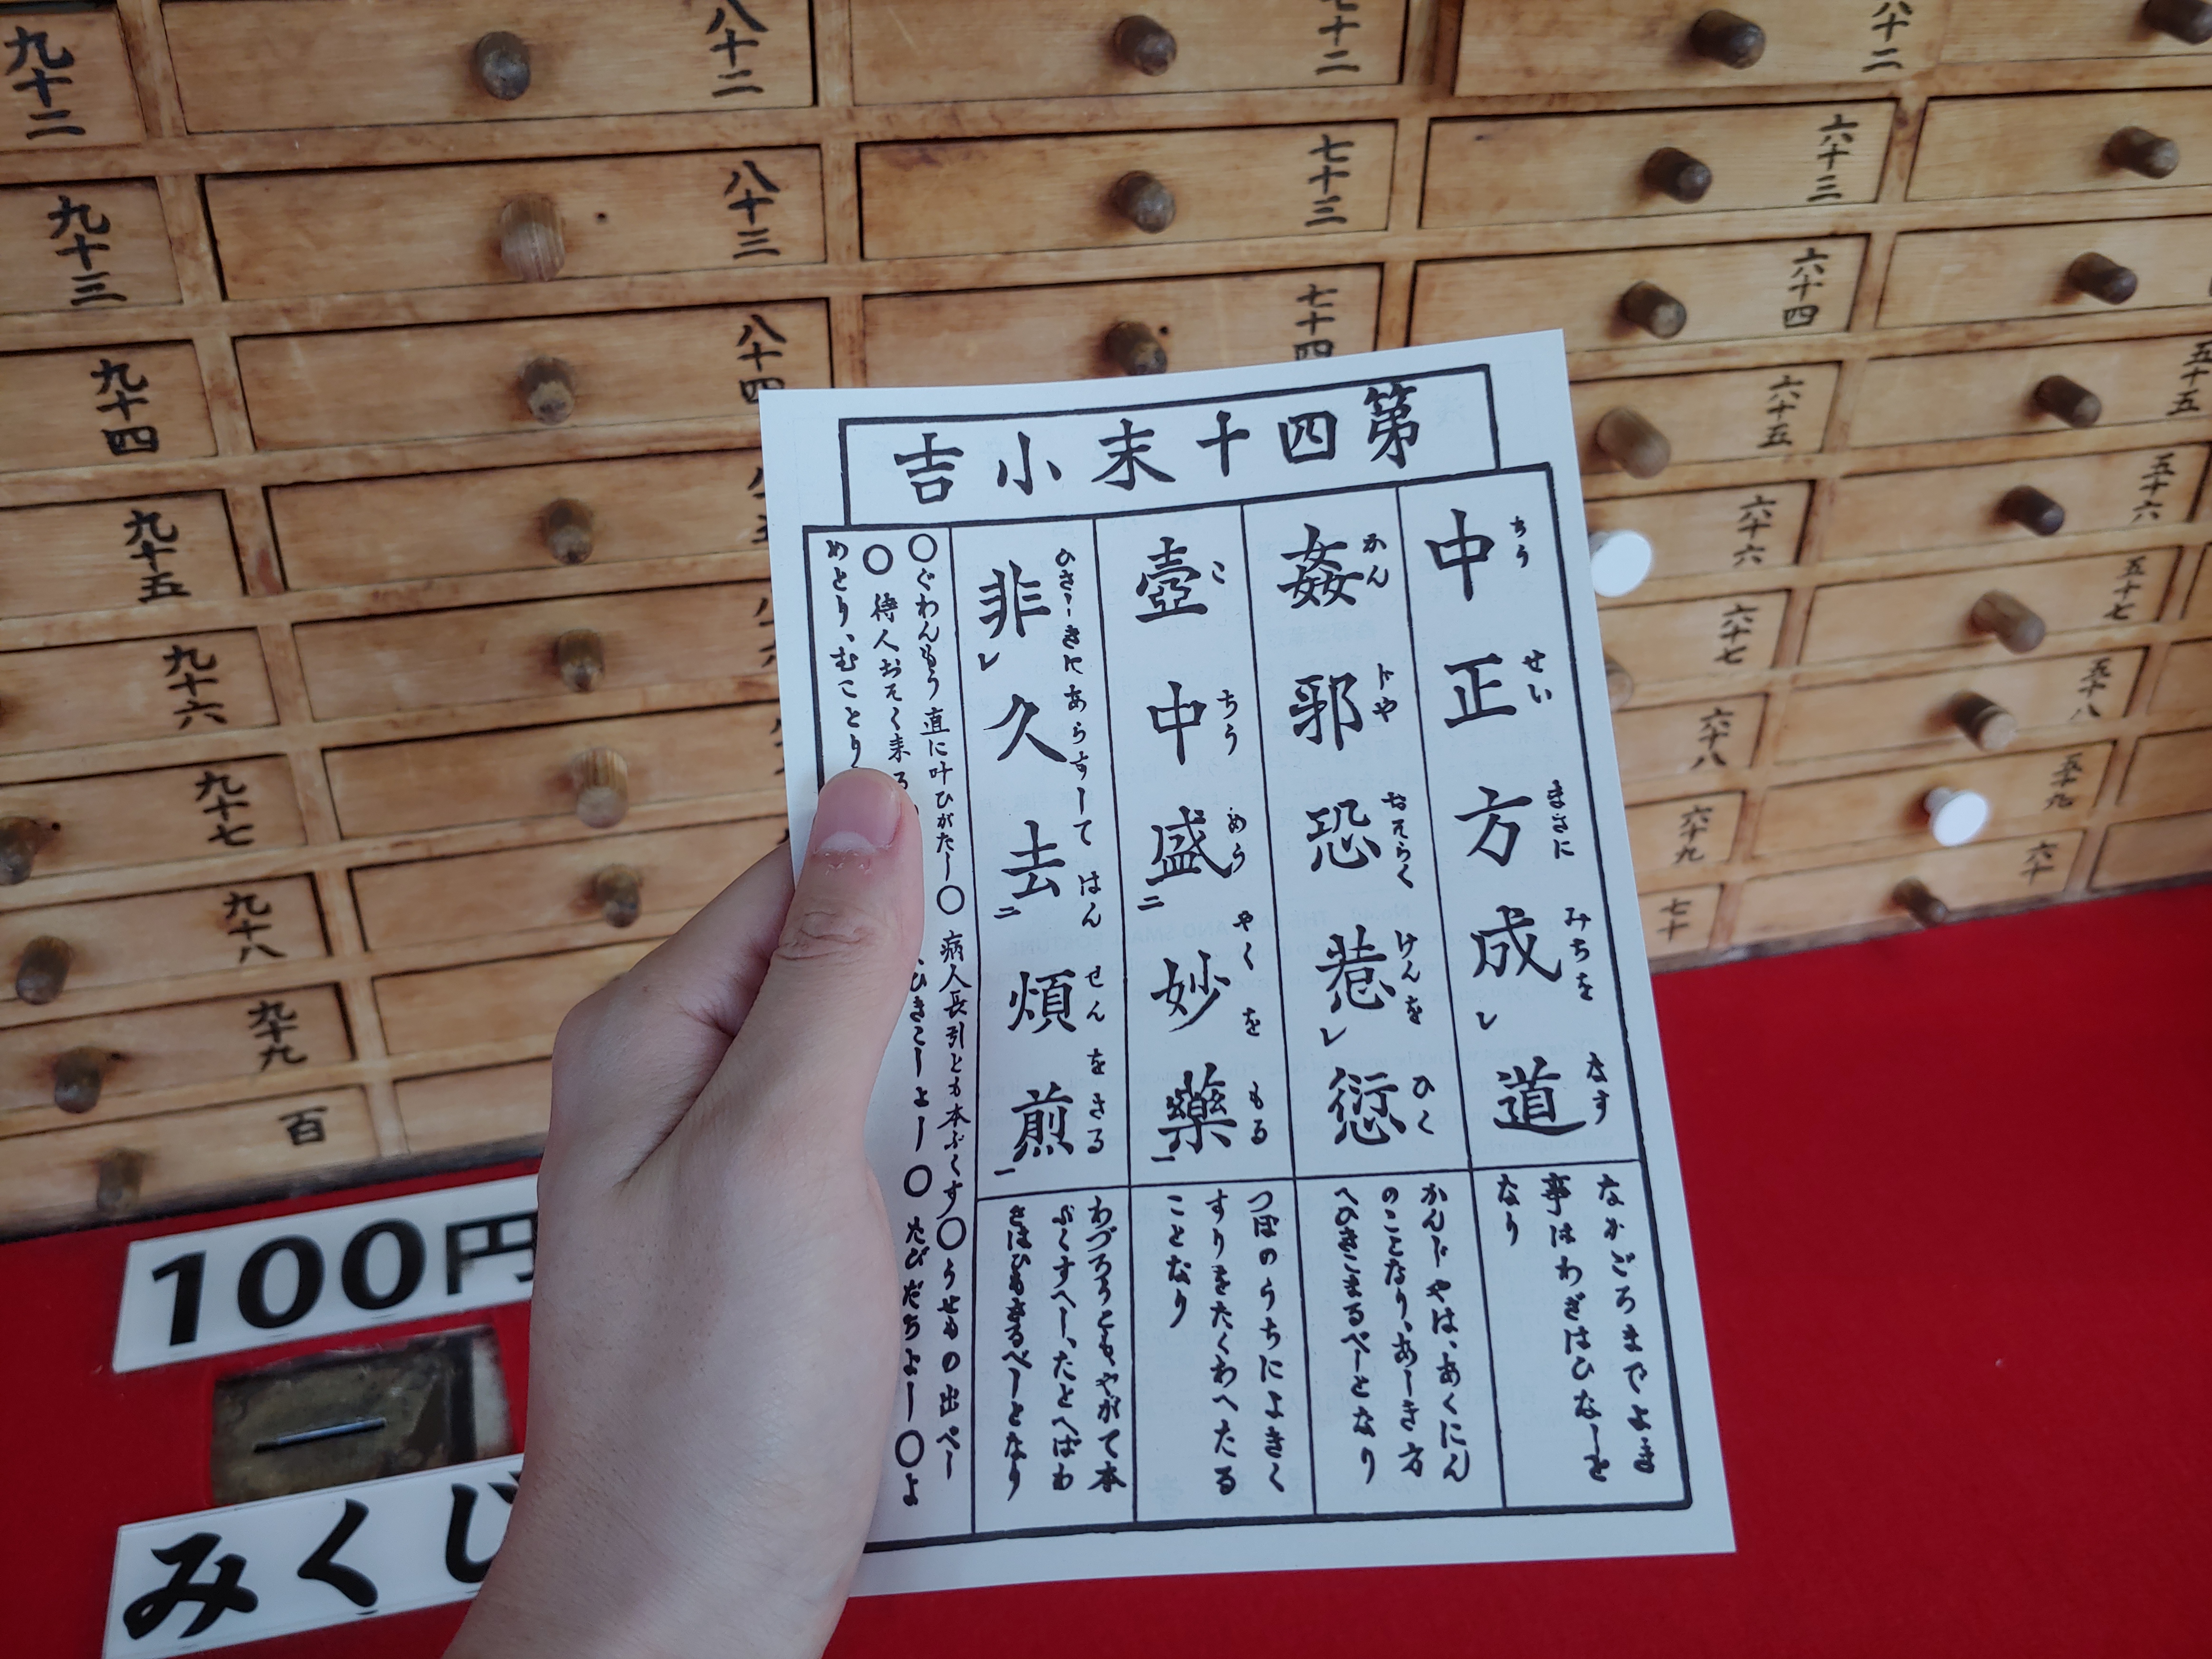 九十二
九十三
九十四
九十五
九十六
九十七
九十八
九十九
百
八十二
八十三
八十四
七十二
七十三
七十四
六十三
六十四
六十五
六十六
六十七
六十八
六十九
七十
五十五
五十六
五十七
五十八
五十九
六十
第四十末小吉
中正方成レ道
ちう せい まさに みちを なす
なかごろまでよき
事はわざはひなしと
なり
姦邪恐惹レ愆
かん じや おそらく けんを ひく
かんじやは、あくにん
のことなり、あしき方
へひきこまるべしとなり
壺中盛二妙藥一
こ ちう めう やく を もる
つぼのうちによきく
すりをたくわへたる
ことなり
非レ久去二煩煎一
ひさしきにあらずして はん せん を さる
わづろうともやがて本
ぶくすべし、たとへばわ
ざはひもさるべしとなり
○ぐわんもう直に叶ひがたし○病人長引とも本ぶくす○うせもの出べし
○待人おそく来る
ひきこしよし○たびだちよし○よ
めとり、むことり
100円
みくじ